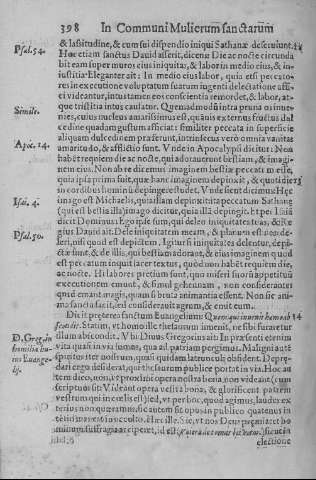 398 In Communi Mulierum sanctarum
& lassitudine, & cum sui dispendio iniqui Sathanæ
Psal. 54. Hoc etiam sanctus David asserit, dicens: Die ac nocte circunda
bit eam super muros eius iniquitas, & labor in medio eius, & in
iustitia. Eleganter ait: In medio eius labor, quia etsi peccato
res in executione voluptatum suarum ingenti delectatione affi-
ci videantur, intus tamen eos conscientia remordet, & labor, at-
que tristitia intus cauiatur. Quemadmodum intra pruna
Simile. mes, cuius nucleus amarissimus est, quanuis externus fructus dul
cedine quadam gustum afficiat: similiter peccata in superficie
aliquam dulcedinem præferunt, intrinsecus verò omnia vanitas
Apoc. 14. amaritudo, & afflictio sunt. Vnde in Apocalypsi dicitur: Non
habét requiem die ac nocte, qui adorauerunt bestiam, & imagi-
nem eius. Non ab re dicemus imaginem bestiæ peccatum esse,
quia ipsa primùm fuit, quæ hanc imaginem depinxit, & quotidie
in cordibus hominũ depingere studet. Vnde sicut dicimus: Hęc
Isai. 4. imago est Michaelis, quia illam depinxit: ita peccatum Sathanę
(qui est bestia illa) imago dicitur, quia illa depingit. Et per Isaiã
dicit Dominus: Ego ipse sum, qui deleo iniquitates tuas, & Re
Psal. 50. gius Dauid ait. Dele iniquitatem meam, & planum est non de-
leri, nisi quod est depictum. Igitur si iniquitates delentur, depi-
ctæ sunt, & de illis, qui bestiam adorant, & eius imaginem quod
est peccatum inquit sacer textus, quòd non habét requiem die,
ac nocte. Hi labores pretium sunt, quo miseri suorũ appetituũ
executionem emunt, & simul gehennam, non considerantes
quid emant magis, quàm si bruta animantia essent. Non sic ani-
ma sancta facit, sed considerauit agrum, & emit eum.
Dicit præterea sanctum Euangelium: Quem qui inuenit homo ab 14
scondit. Statim, vt homo ille thesaurum inuenit, ne sibi furaretur
D. Greg. in illum abscondit. Vbi Diuus Gregorius ait: In præsenti etenim
homilia hu- vita quasi in via sumus, qua ad patriam pergimus. Maligni autẽ
ius Euange- spiritus iter nostrum, quasi quidam latrunculi obsident. Depræ-
lij. dari ergo desiderat, qui thesaurum publicè portat in via. Hoc au
tem dico, non, vt proximi opera nostra bona, non videant, cùm
scriptum sit: Videant opera vestra bona, & glorificent patrem
vestrum qui in cælis est: sed, vt per hoc, quod agimus, laudes ex
terius non quæramus: sic autem sit opus in publico quatenus in
tentio maneat in occulto. Hæc ille. Sic, vt nos Deus præparet ho
minum suffragia accipere, id est
electione